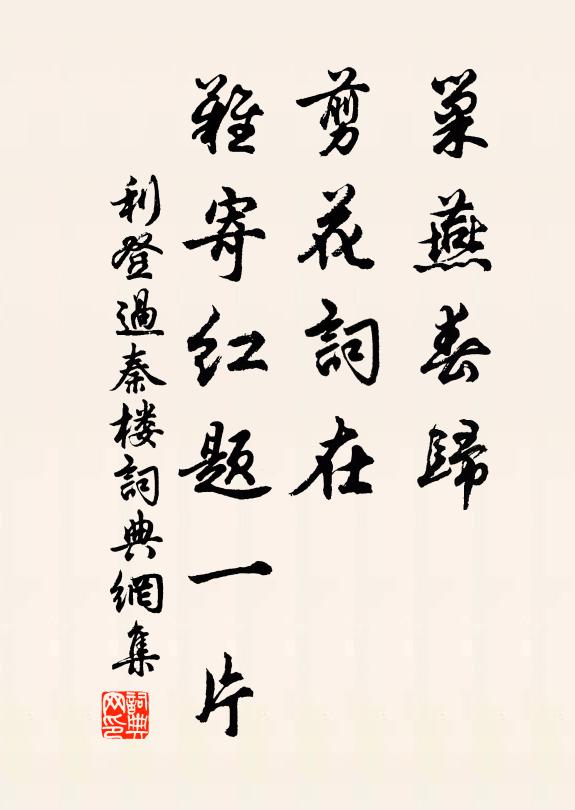 巢燕春歸
剪花詞在
難寄紅题一片
利登過秦楼詞典網集
詞典网印